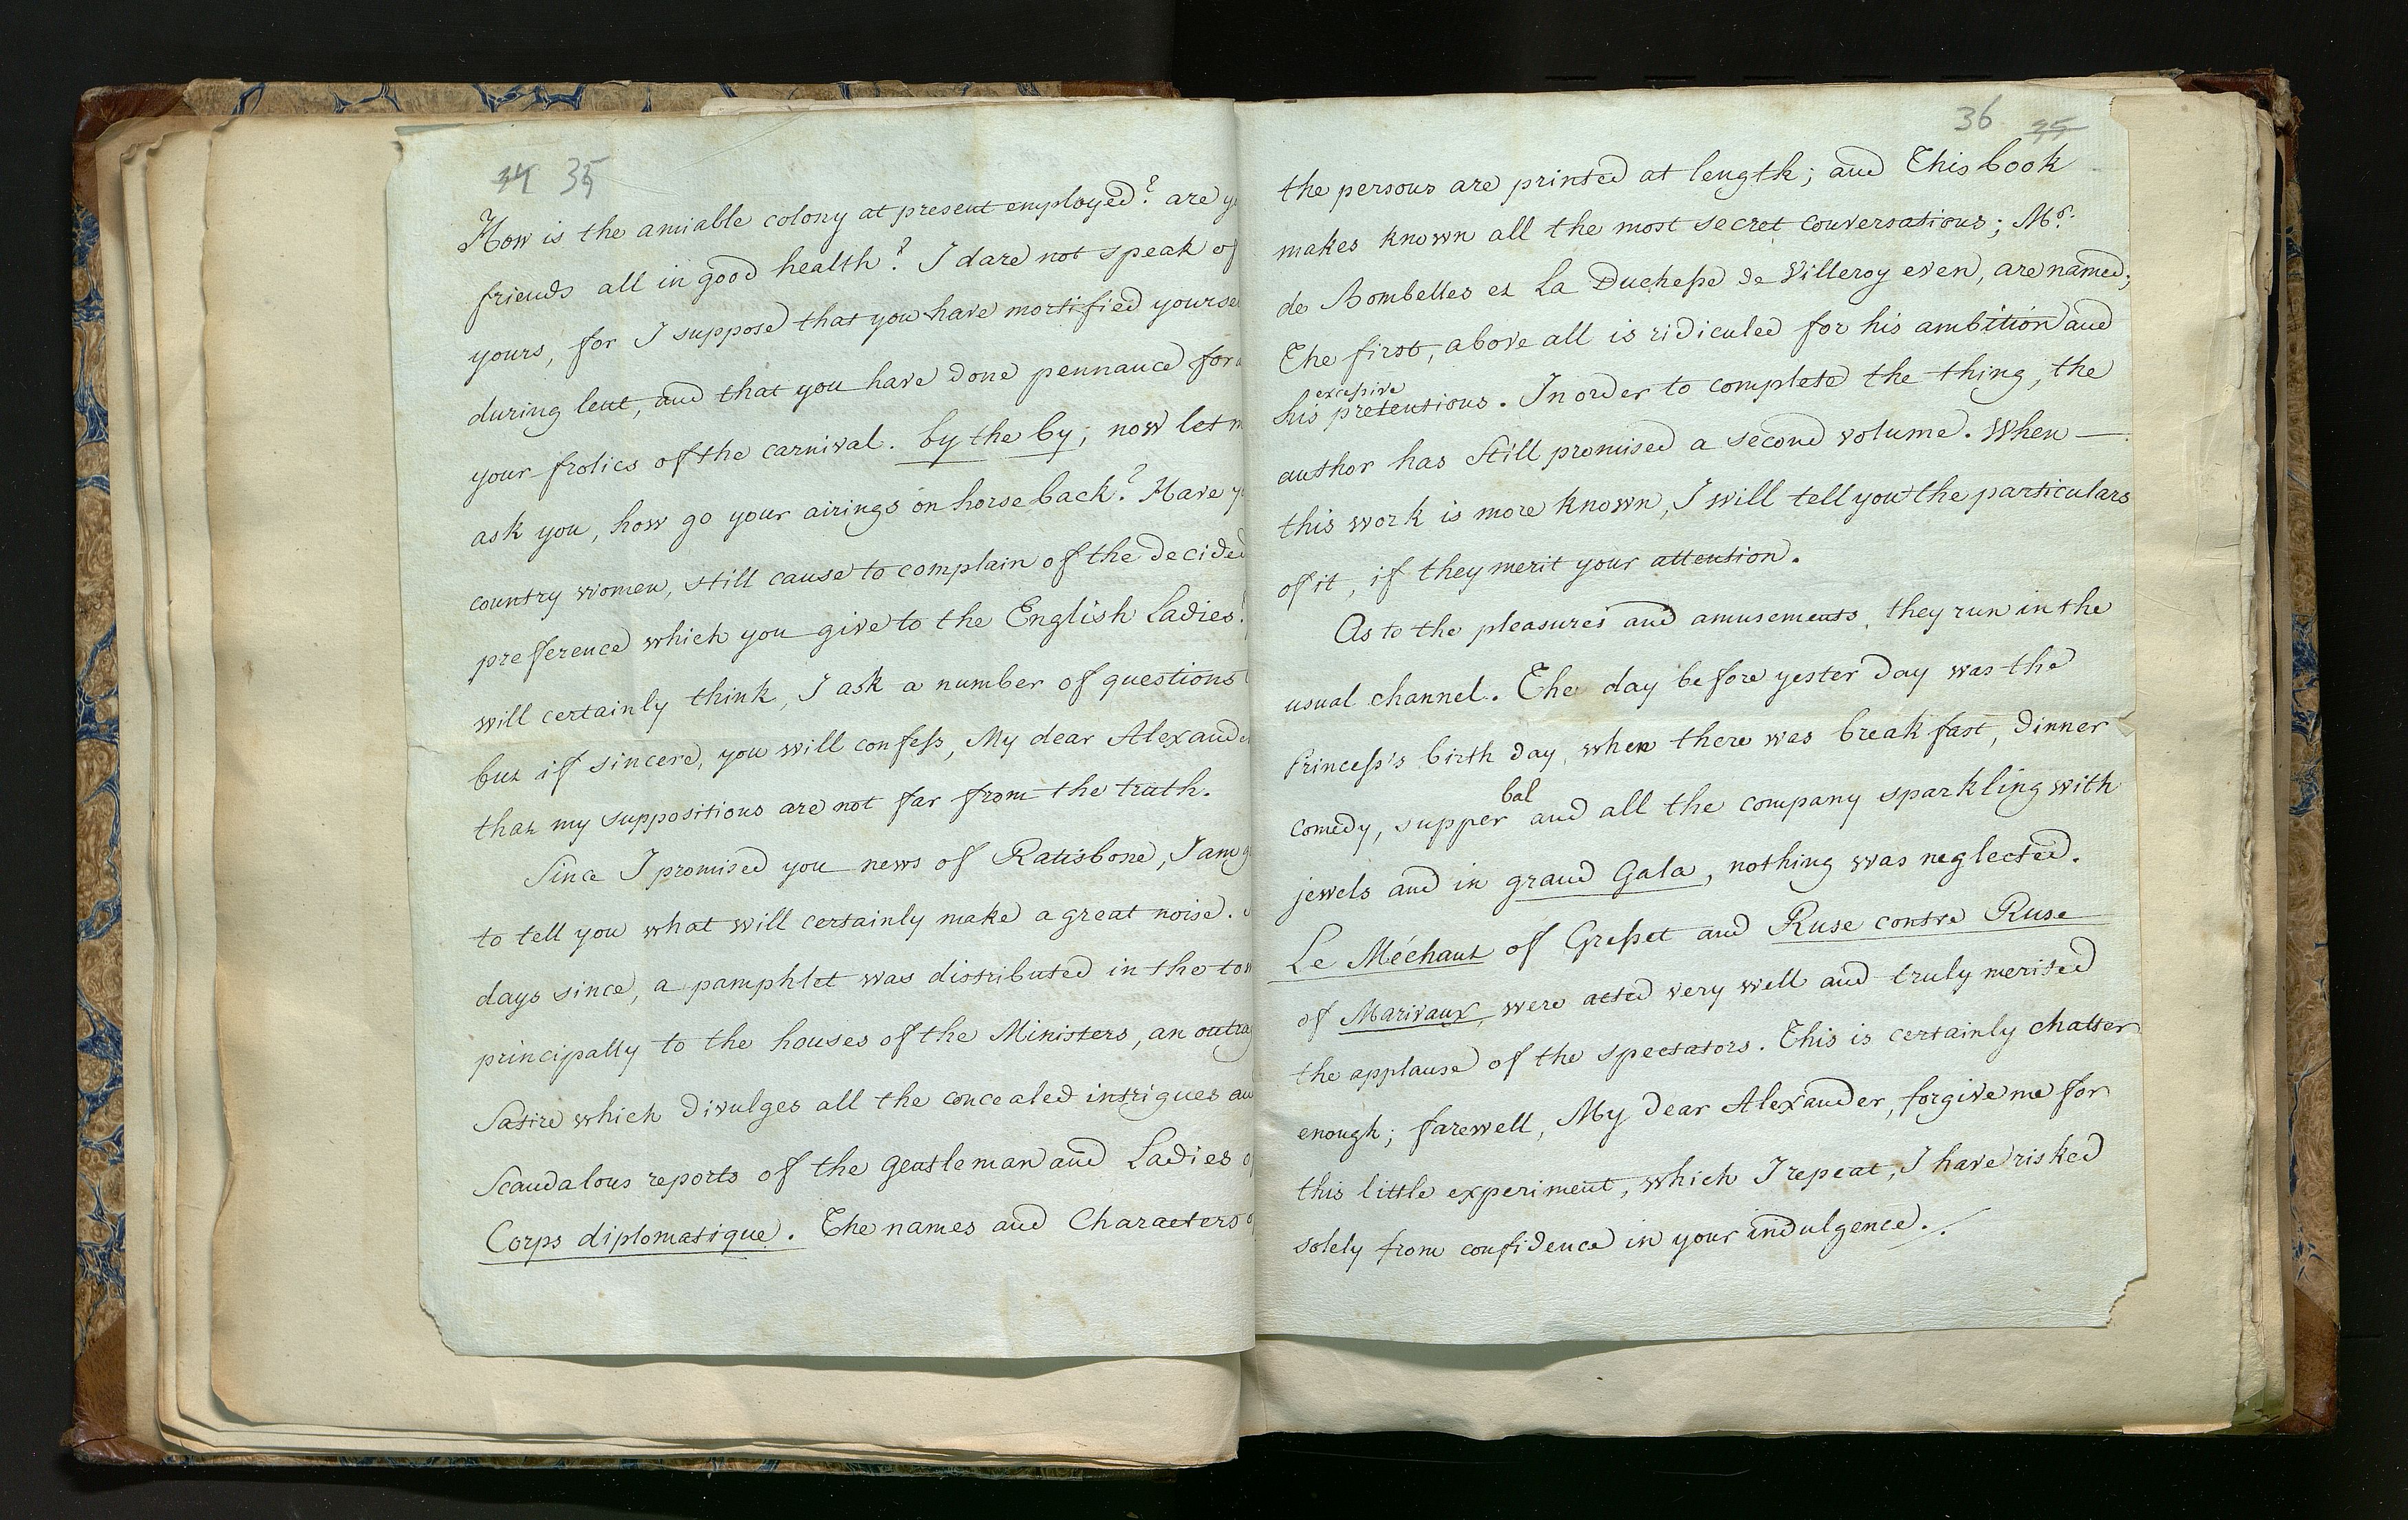 34 35
How is the amiable colony at present employed? are
friends all in good health? I dare not speak of
yours, for I suppose that you have mortified
during lent, and that you have done pennance for
your frolics of the carnival. by the by; now let
ask you, how go your airings on horse back? Have
country women, still cause to complain of the decided
preference which you give to the English Ladies?
will certainly think, I ask a number of questions
but if sincere, you will confess, My dear
that my suppositions are not far from the truth.
Since I promised you news of Ratisbone, I am
to tell you what will certainly make a great noise.
days since, a pamphlet was distributed in the
principally to the houses of the Ministers, an
Satire which divulges all the concealed intrigues
Scandalous reports of the gentleman and Ladies
Corps diplomatique. The names and Characters
36 35
the persons are printed at length; and This book
makes known all the most secret conversations; Mr.
de Bombelles et La Duchesse de Villeroy even, are named;
The first, above all is ridiculed for his ambition and
excessive
his pretensions. In order to complete the thing, the
author has Still promised a second volume. When —
this work is more known, I will tell you the particulars
of it, if they merit your attention.
As to the pleasures and amusements, they run in the
usual channel. The day before yester day was the
Princess's birth day, when there was break fast, dinner
bal
comedy, supper and all the company sparkling with
jewels and in grand Gala, nothing was neglected.
Le Méchant of Gresset and Ruse contre Ruse
of Marivaux, were acted very well and truly merited
the applause of the spectators. This is certainly chatter
enough; farewell, My dear Alexander, forgive me for
this little experiment, which I repeat, I have risked
solely from confidence in your indulgence./.